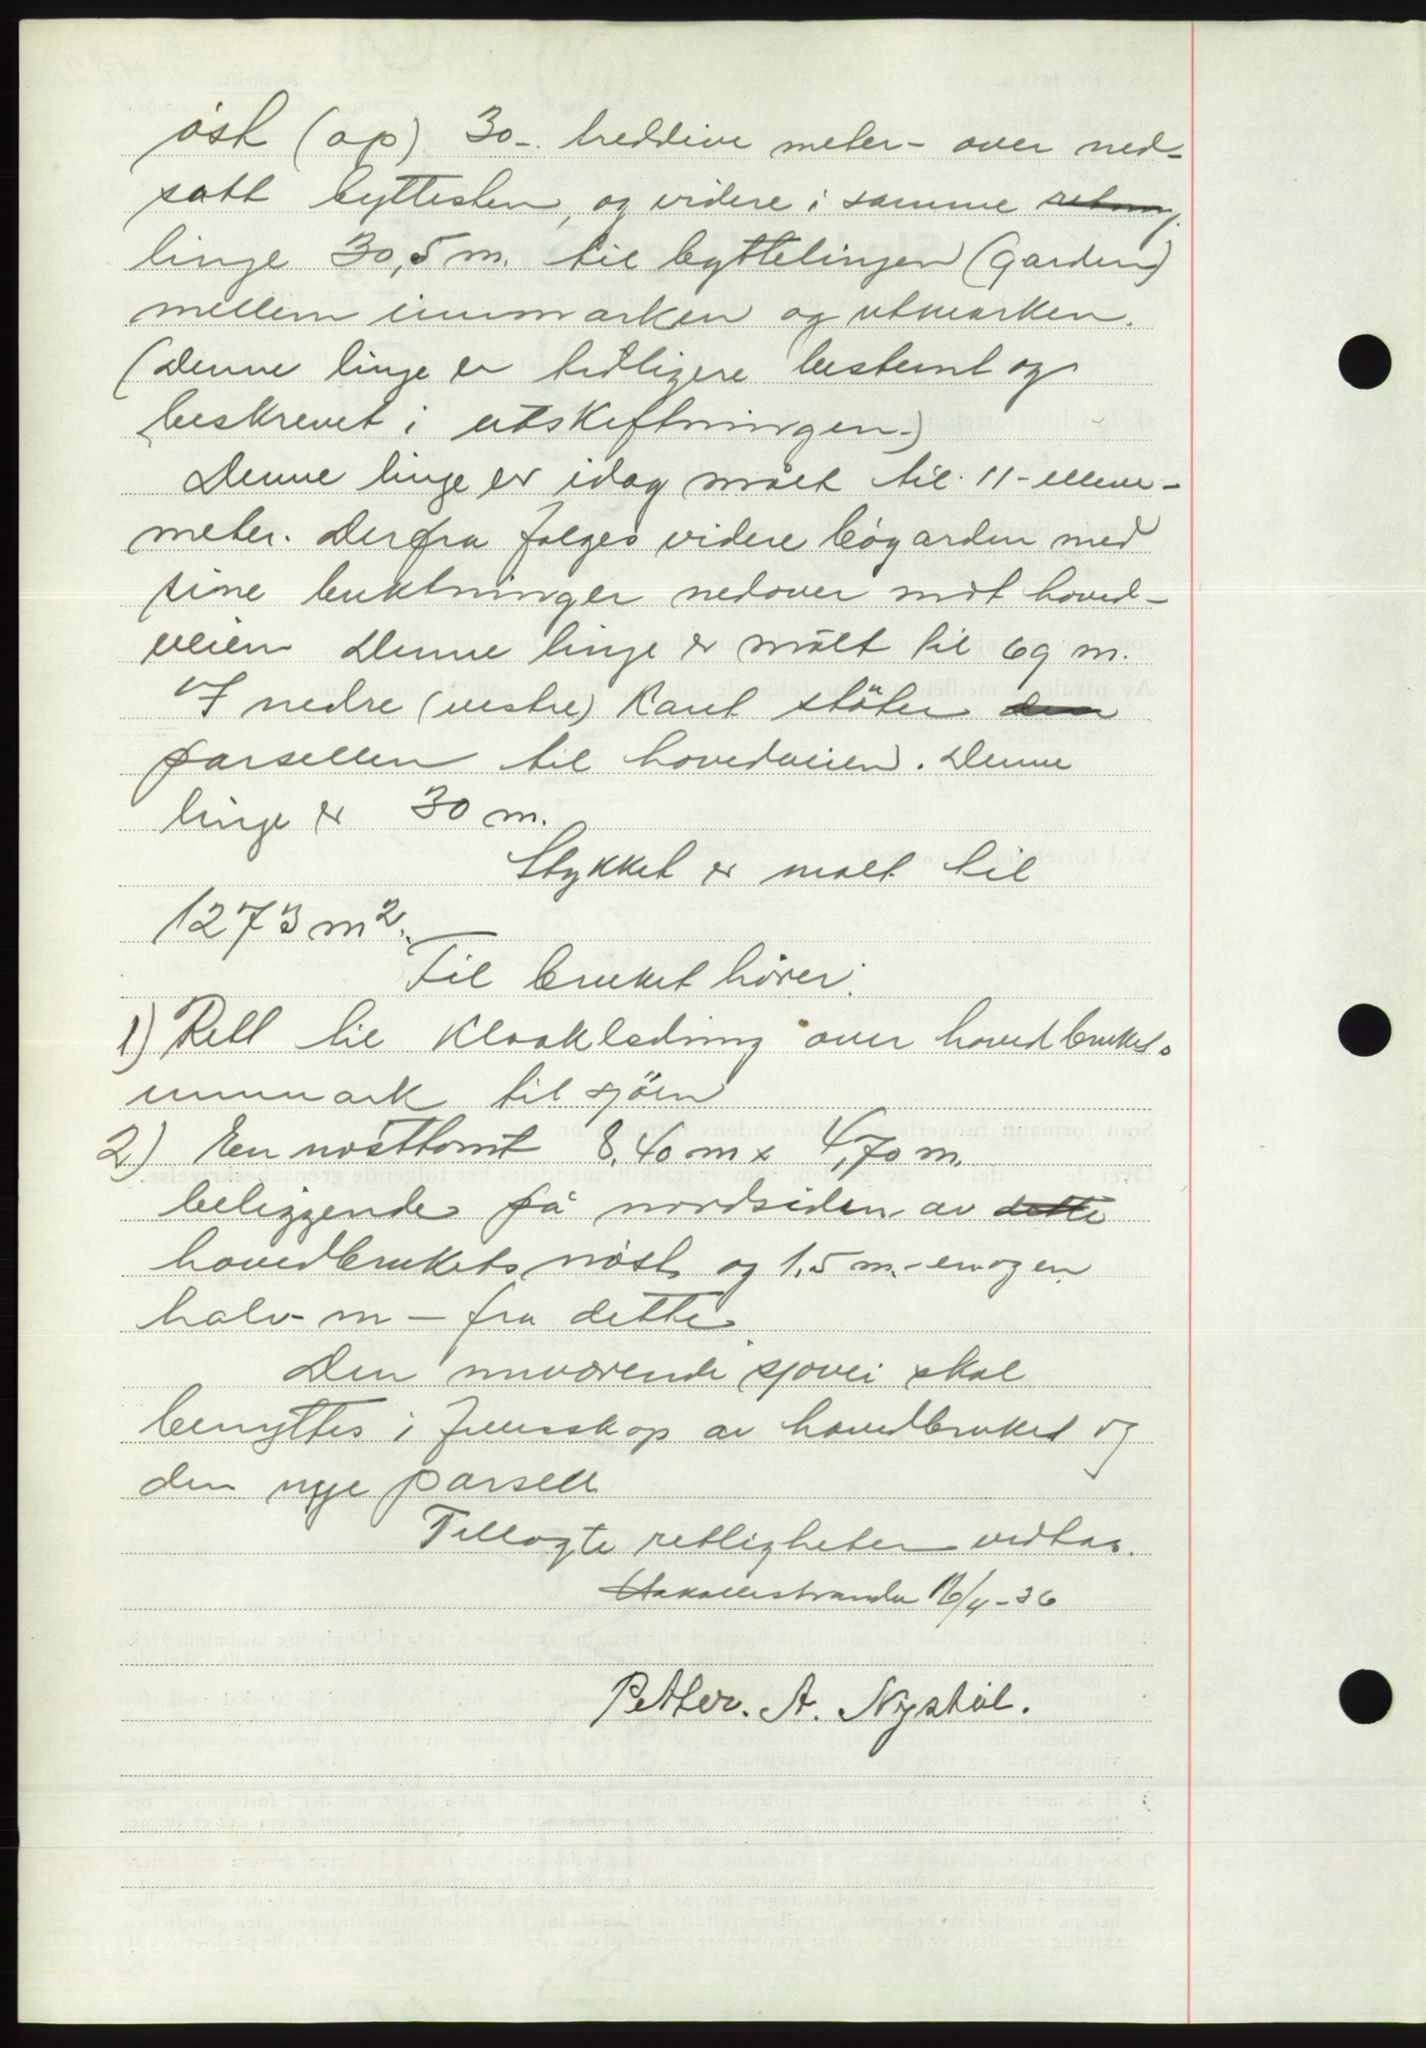 øst (op) 30-. treddive meter - over ned-
satt byttesten, og videre i samme retning
linje 30,5 m. til byttelinjen (garden)
mellem innmarken og utmarken.
(Denne linje er tidligere bestemt og
beskrevet i utskiftningen.)
Denne linje er idag målt til 11 - elleve -
meter. Derfra følges videre bøgarden med
sine buktninger nedover mot hoved-
veien Denne linje er målt til 69 m.
I nedre (vestre) kant støter den
parsellen til hovedveien. Denne
linje er 30 m.
Stykket er målt til
1273 m2.
Til bruket hører:
1) Rett til kloakledning over hovedbrukets
innmark til sjøen
2) En nøsttomt 8,40 m x 4,70 m.
beliggende på nordsiden av dette
hovedbrukets nøst og 1,5 m. - en og en
halv - m - fra dette.
Den nuværende sjøvei skal
benyttes i fellesskap av hovedbruket og
den nye parsell
Tillagte rettigheter vedtas.
Hakallestranda 16/4-36
Petter. A. Nystøl.